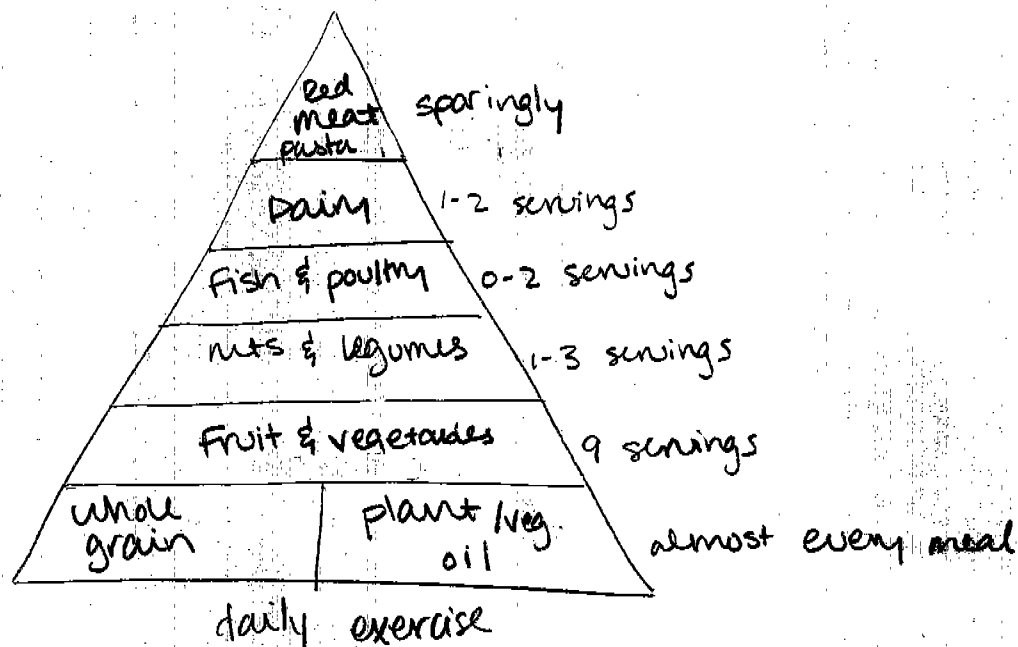 Red
meat
pasta
sparingly
Dairy
1-2 servings
Fish & poultry
0-2 servings
nuts & legumes
1-3 servings
Fruit & vegetables
9 servings
whole
grain
plant /veg.
oil
almost every meal
daily exercise